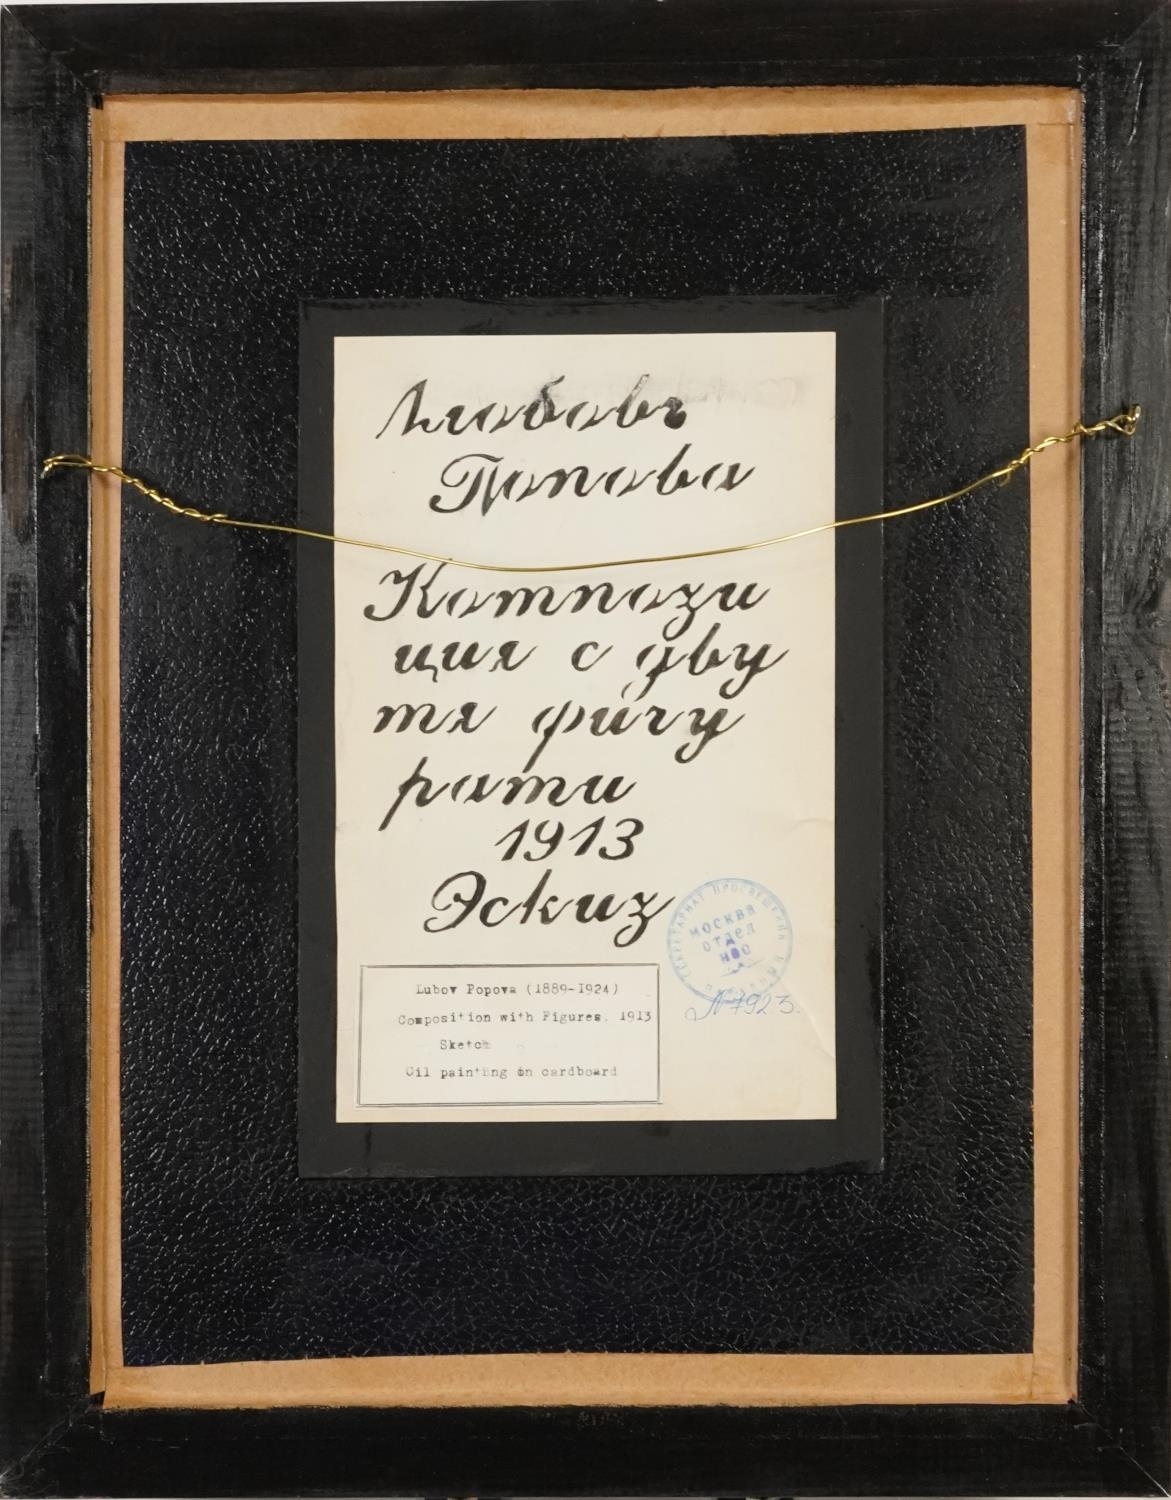 Любовь
Попова
Компози
ция с дву
мя фигу
рами
1913
Эскиз
СЕКРЕТАРИАТ ПРОСВЕЩЕНИЯ
МОСКВА
ОТДЕЛ
НОО
N 792 3.
Lubov Popova (1889-1924)
Composition with Figures. 1913
Sketch
Oil painting on cardboard